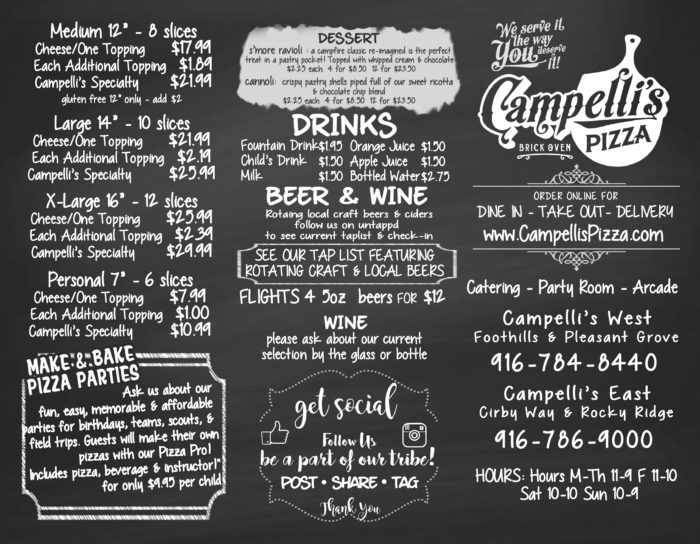 Medium 12" - 8 slices
Cheese/One Topping $17.99
Each Additional Topping $1.89
Campelli's Specialty $21.99
gluten free 12" only - add $2
Large 14" - 10 slices
Cheese/One Topping $21.99
Each Additional Topping $2.19
Campelli's Specialty $25.99
X-Large 16" - 12 slices
Cheese/One Topping $25.99
Each Additional Topping $2.39
Campelli's Specialty $29.99
Personal 7" - 6 slices
Cheese/One Topping $7.99
Each Additional Topping $1.00
Campelli's Specialty $10.99
MAKE & BAKE
PIZZA PARTIES
Ask us about our
fun, easy, memorable & affordable
parties for birthdays, teams, scouts, &
field trips. Guests will make their own
pizzas with our Pizza Pro!
Includes pizza, beverage & instructor!*
for only $9.95 per child
DESSERT
s'more ravioli : a campfire classic re-imagined is the perfect
treat in a pastry pocket! Topped with whipped cream & chocolate
$2.25 each 4 for $8.50 12 for $23.50
cannoli: crispy pastry shells piped full of our sweet ricotta
& chocolate chip blend
$2.25 each 4 for $8.50 12 for $23.50
DRINKS
Fountain Drink $1.95 Orange Juice $1.50
Child's Drink $1.50 Apple Juice $1.50
Milk $1.50 Bottled Water $2.75
BEER & WINE
Rotaing local craft beers & ciders
follow us on untappd
to see current taplist & check-in
SEE OUR TAP LIST FEATURING
ROTATING CRAFT & LOCAL BEERS
FLIGHTS 4 5oz beers FOR $12
WINE
please ask about our current
selection by the glass or bottle
get social
Follow Us
be a part of our tribe!
POST • SHARE • TAG
Thank You
We serve it
the way
You deserve
it!
Campelli's
BRICK OVEN PIZZA
ORDER ONLINE FOR
DINE IN - TAKE OUT- DELIVERY
www.CampellisPizza.com
Catering - Party Room - Arcade
Campelli's West
Foothills & Pleasant Grove
916-784-8440
Campelli's East
Cirby Way & Rocky Ridge
916-786-9000
HOURS: Hours M-Th 11-9 F 11-10
Sat 10-10 Sun 10-9